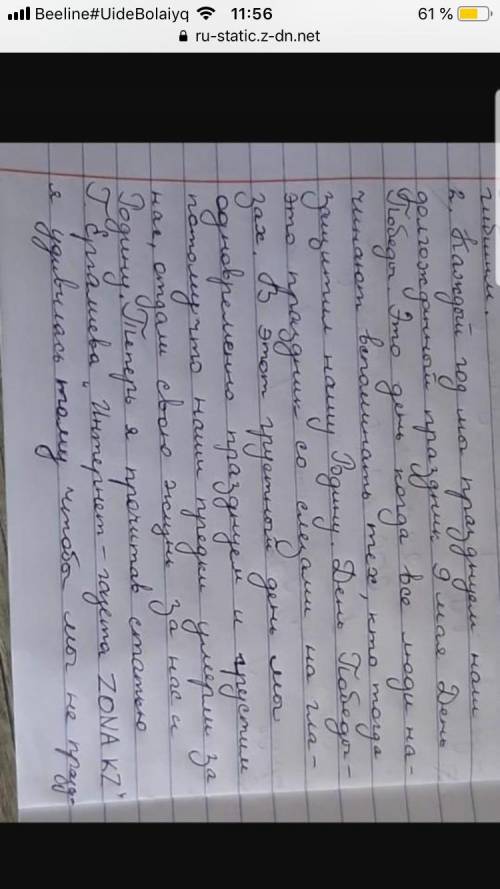 Beeline#UideBolaiyq 11:56 61 %
ru-static.z-dn.net
2. Каждый год мы празднуем наш
долгожданный праздник 9 мая День
Победы. Это день когда все люди на-
чинают вспоминать тех, кто тогда
защитил нашу Родину. День Победы -
это праздник со слезами на гла-
зах. В этот грустный день мы
одновременно празднуем и грустим
потому что наши предки умерли за
нас, отдали свою жизнь за нас и
Родину. Теперь я прочитав статью
"Интернет-газета ZONAKZ"
я удивилась тому чтобы мы не празд-